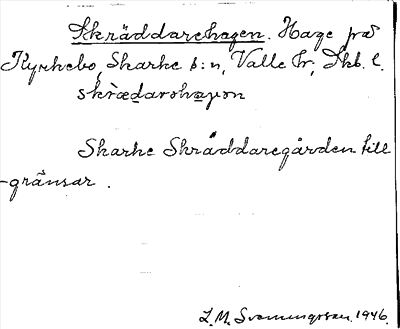 Skräddarehagen. Hage på
Kyrkebo, Skarke s:n, Valle hr, Skb. l.
skræ̀darəhạɡən
Skarke Skräddaregården till
-gränsar.
L. M. Svenungsson. 1946.